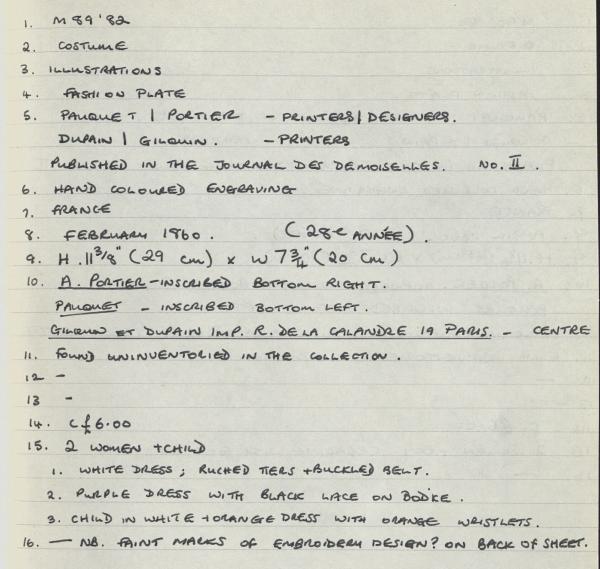 1. M 89 '82
2. COSTUME
3. ILLUSTRATIONS
4. FASHION PLATE
5. PAUQUET | PORTIER - PRINTERS | DESIGNERS.
DUPAIN | GILQUIN. - PRINTERS
PUBLISHED IN THE JOURNAL DES DEMOISELLES. NO. II.
6. HAND COLOURED ENGRAVING
7. FRANCE
8. FEBRUARY 1860. (28e ANNÉE).
9. H. 11 3/8" (29 cm) x W 7 3/4" (20 cm)
10. A. PORTIER - INSCRIBED BOTTOM RIGHT.
PAUQUET - INSCRIBED BOTTOM LEFT.
GILQUIN ET DUPAIN IMP. R. DE LA CALANDRE 19 PARIS. - CENTRE
11. FOUND UNINVENTORIED IN THE COLLECTION.
12 -
13 -
14. C £6.00
15. 2 WOMEN + CHILD
1. WHITE DRESS; RUCHED TIERS + BUCKLED BELT.
2. PURPLE DRESS WITH BLACK LACE ON BODICE.
3. CHILD IN WHITE + ORANGE DRESS WITH ORANGE WRISTLETS.
16. — NB. FAINT MARKS OF EMBROIDERY DESIGN? ON BACK OF SHEET.